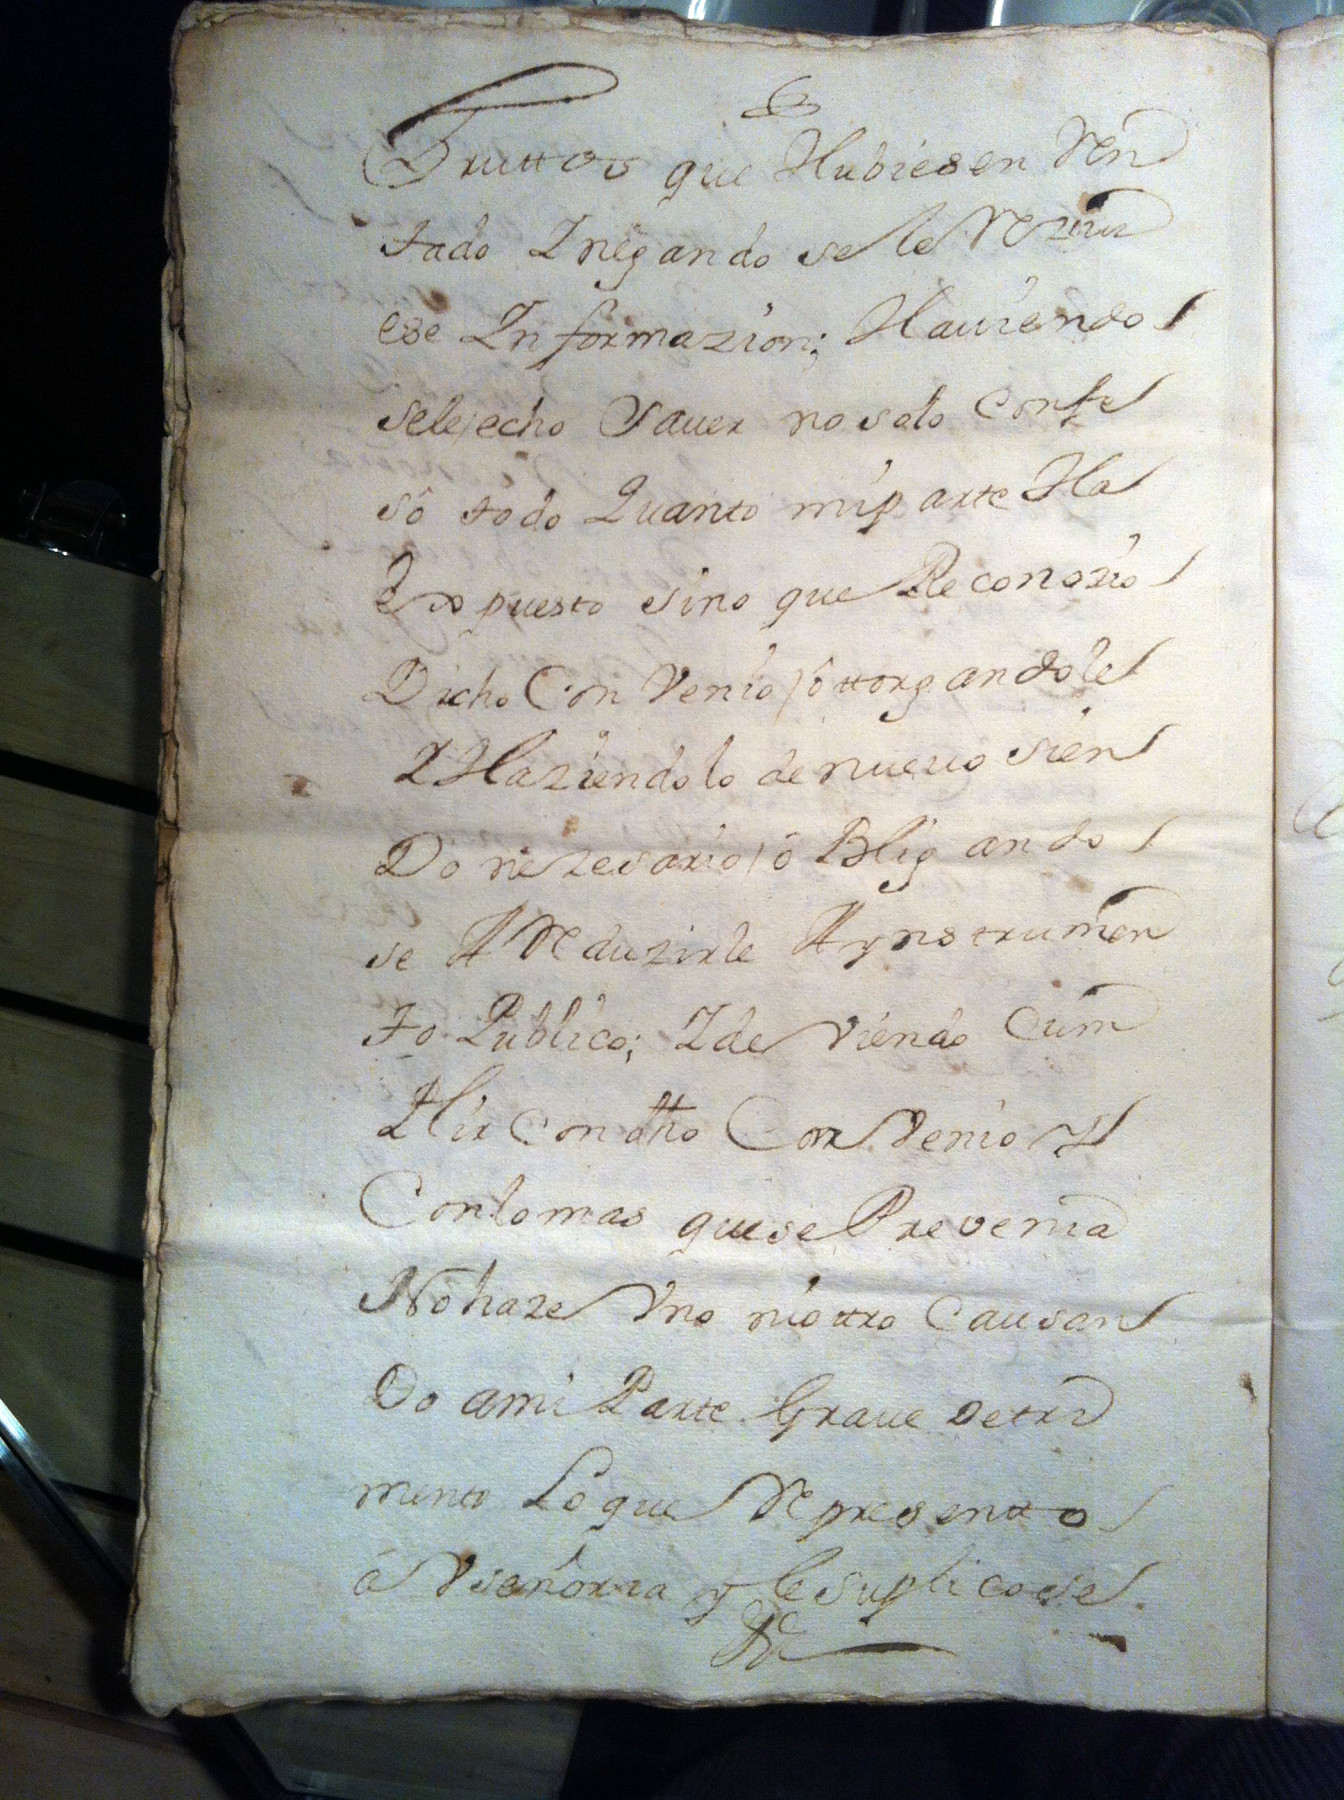 Fruttos que Hubiesen Ren
tado Inegandosele Rezivi
ese Informazion; Hauiendo
selejecho Sauer no solo Confe
só todo Quanto mi parte Ha
Expuesto sino que Reconozio
Dicho Convenio ôttorgandole
I Haziendolo de nueuo sien
Do nezesario ô Bligando
se A Reduzirle A ynstrumen
to Publico; I deviendo Cum
Plir con dho Convenio y
Con lo mas que se Prevenia
No haze Vno ni ottro Causan
Do a mi Parte Graue Detri
mento Lo que Represento
á Vsenoria y le suplico se